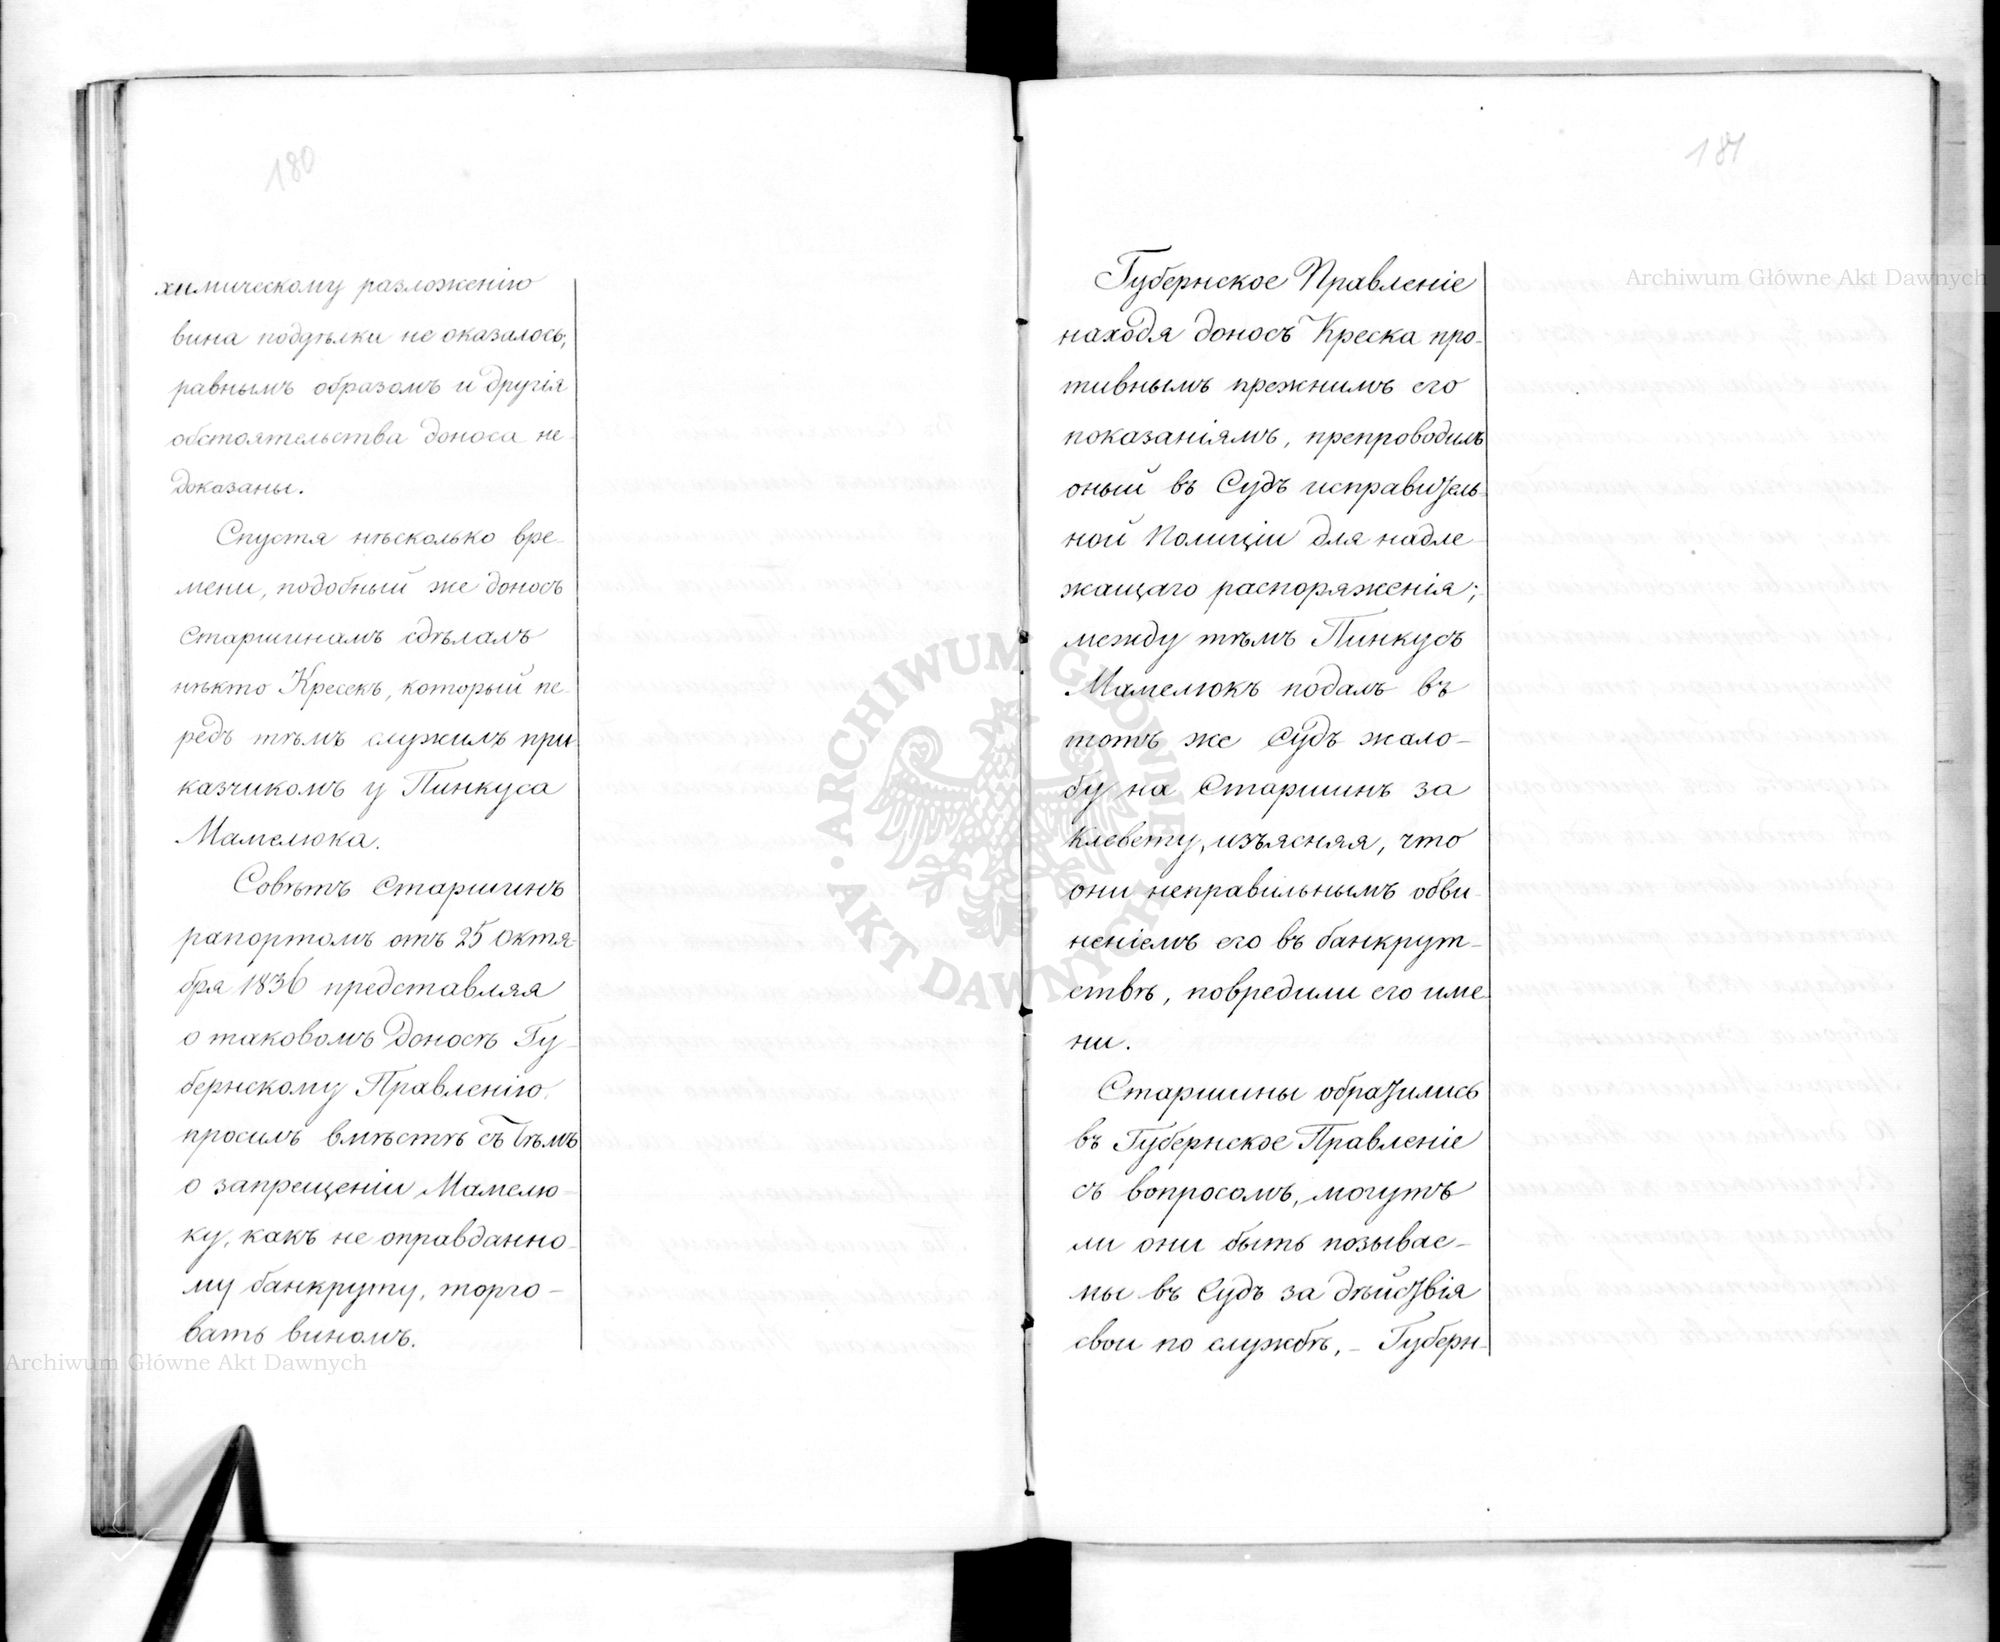 180
химическому разложенію
вина поддѣлки не оказалось,
равнымъ образомъ и другія
обстоятельства доноса не
доказаны.
Спустя нѣсколько вре-
мени, подобный же доносъ
Старшинамъ сдѣлалъ
нѣкто Кресекъ, который пе-
редъ тѣмъ служилъ при
казчикомъ у Пинкуса
Мамелюка.
Совѣтъ Старшинъ
рапортомъ отъ 25 Октя-
бря 1836 представляя
о таковомъ доносѣ Гу-
бернскому Правленію,
просилъ вмѣстѣ съ тѣмъ
о запрещеніи Мамелю-
ку, какъ не оправданно-
му банкруту, торго-
вать виномъ.
181
Губернское Правленіе
находя доносъ Креска про-
тивнымъ прежнимъ его
показаніямъ, препроводилъ
оный въ Судъ исправитель-
ной Полиціи для надле-
жащаго распоряженія;
между тѣмъ Пинкусъ
Мамелюкъ подалъ въ
тотъ же Судъ жало-
бу на Старшинъ за
клевету, изъясняя, что
они неправильнымъ обви-
неніемъ его въ банкрут-
ствѣ, повредили его име-
ни.
Старшины обратились
въ Губернское Правленіе
съ вопросомъ, могутъ
ли они быть позывае-
мы въ Судъ за дѣйствія
свои по службѣ, – Губерн-
Archiwum Główne Akt Dawnych
Archiwum Główne Akt Dawnych
ARCHIWUM GŁÓWNE AKT DAWNYCH